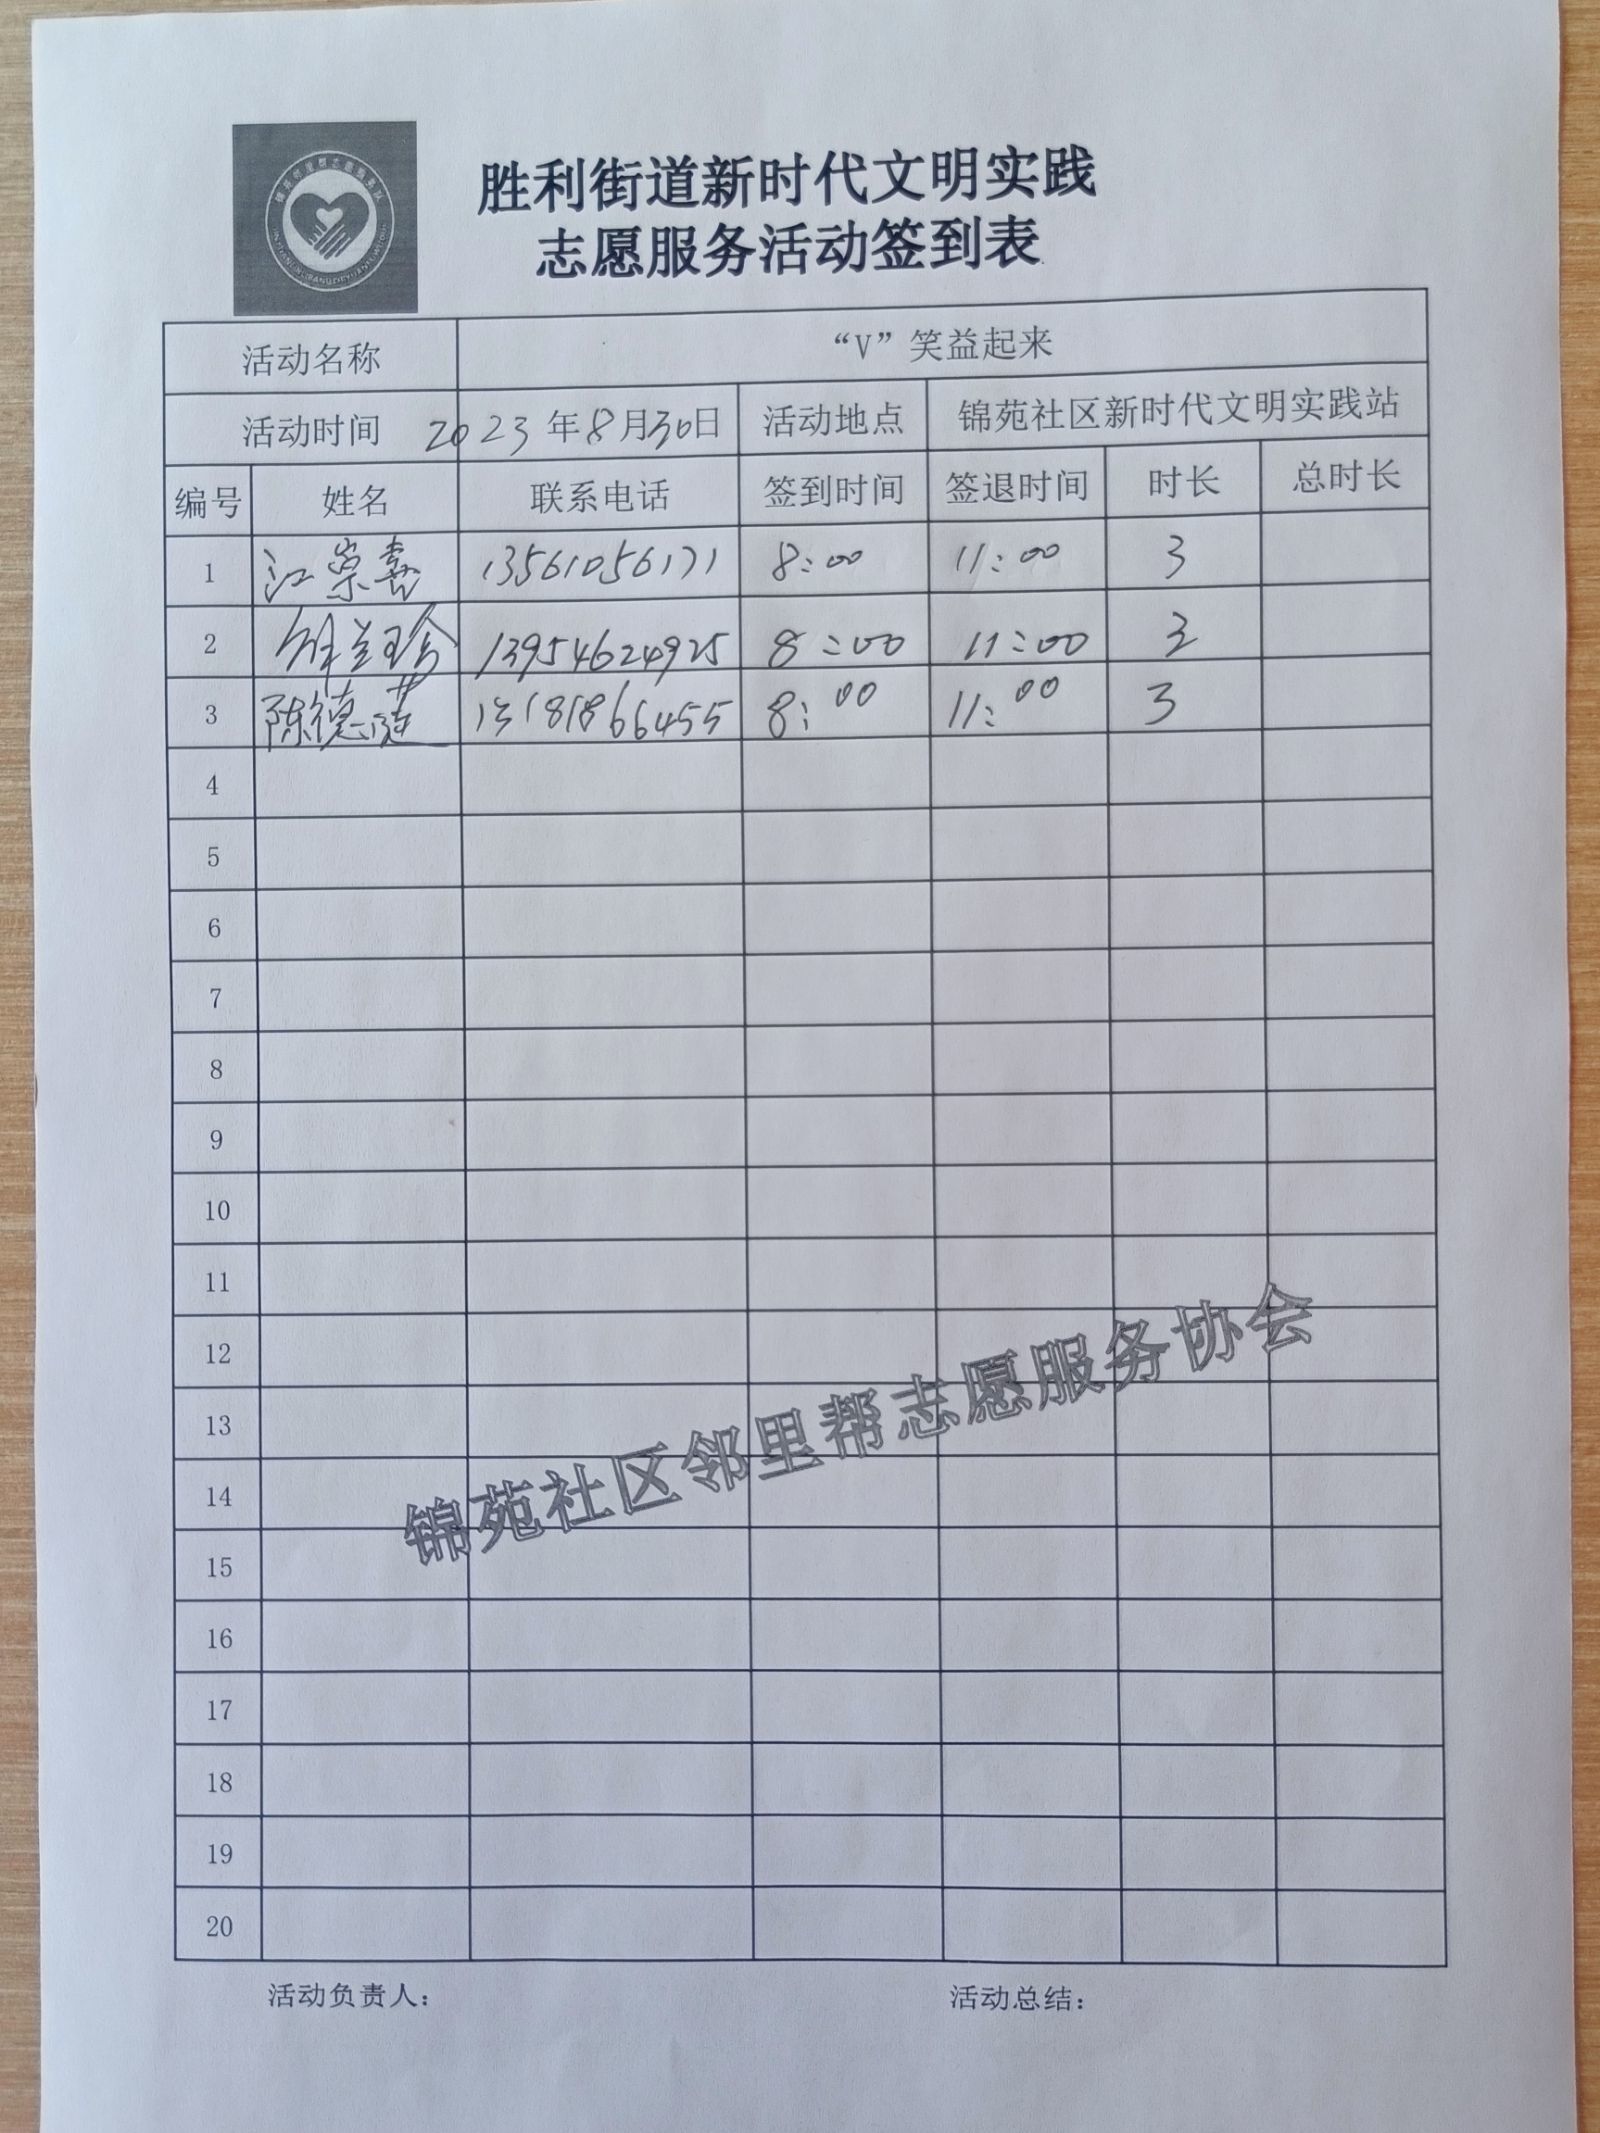 胜利街道新时代文明实践
志愿服务活动签到表
活动名称 “V”笑益起来
活动时间 2023年8月30日 活动地点 锦苑社区新时代文明实践站
编号 姓名 联系电话 签到时间 签退时间 时长 总时长
1 江崇喜 13561056171 8:00 11:00 3
2 兰珍 13954624925 8:00 11:00 3
3 陈德莲 13181866455 8:00 11:00 3
4
5
6
7
8
9
10
11
12
13
14
15
16
17
18
19
20
锦苑社区邻里帮志愿服务协会
活动负责人: 活动总结: